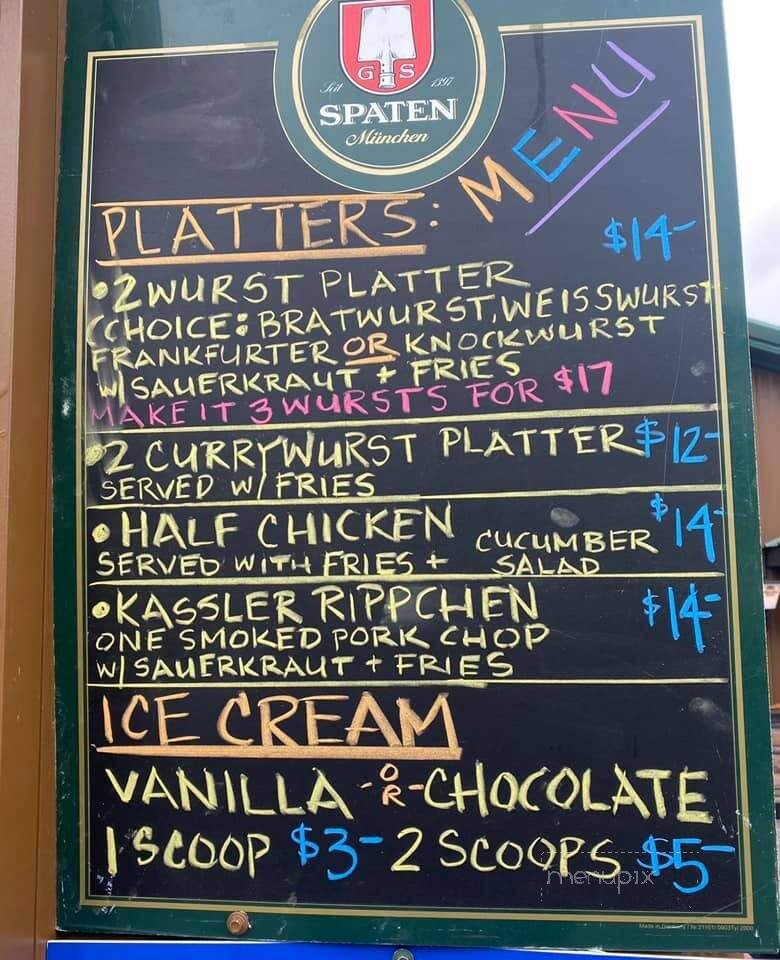 G S
Seit 1397
SPATEN
München
MENU
PLATTERS:
$14-
•2 WURST PLATTER
(CHOICE: BRATWURST, WEISSWURST
FRANKFURTER OR KNOCKWURST
W/ SAUERKRAUT + FRIES
MAKE IT 3 WURSTS FOR $17
•2 CURRYWURST PLATTER $12-
SERVED W/ FRIES
•HALF CHICKEN $14-
SERVED WITH FRIES + CUCUMBER SALAD
•KASSLER RIPPCHEN $14-
ONE SMOKED PORK CHOP
W/ SAUERKRAUT + FRIES
ICE CREAM
VANILLA -OR- CHOCOLATE
1 SCOOP $3- 2 SCOOPS $5-
menupix